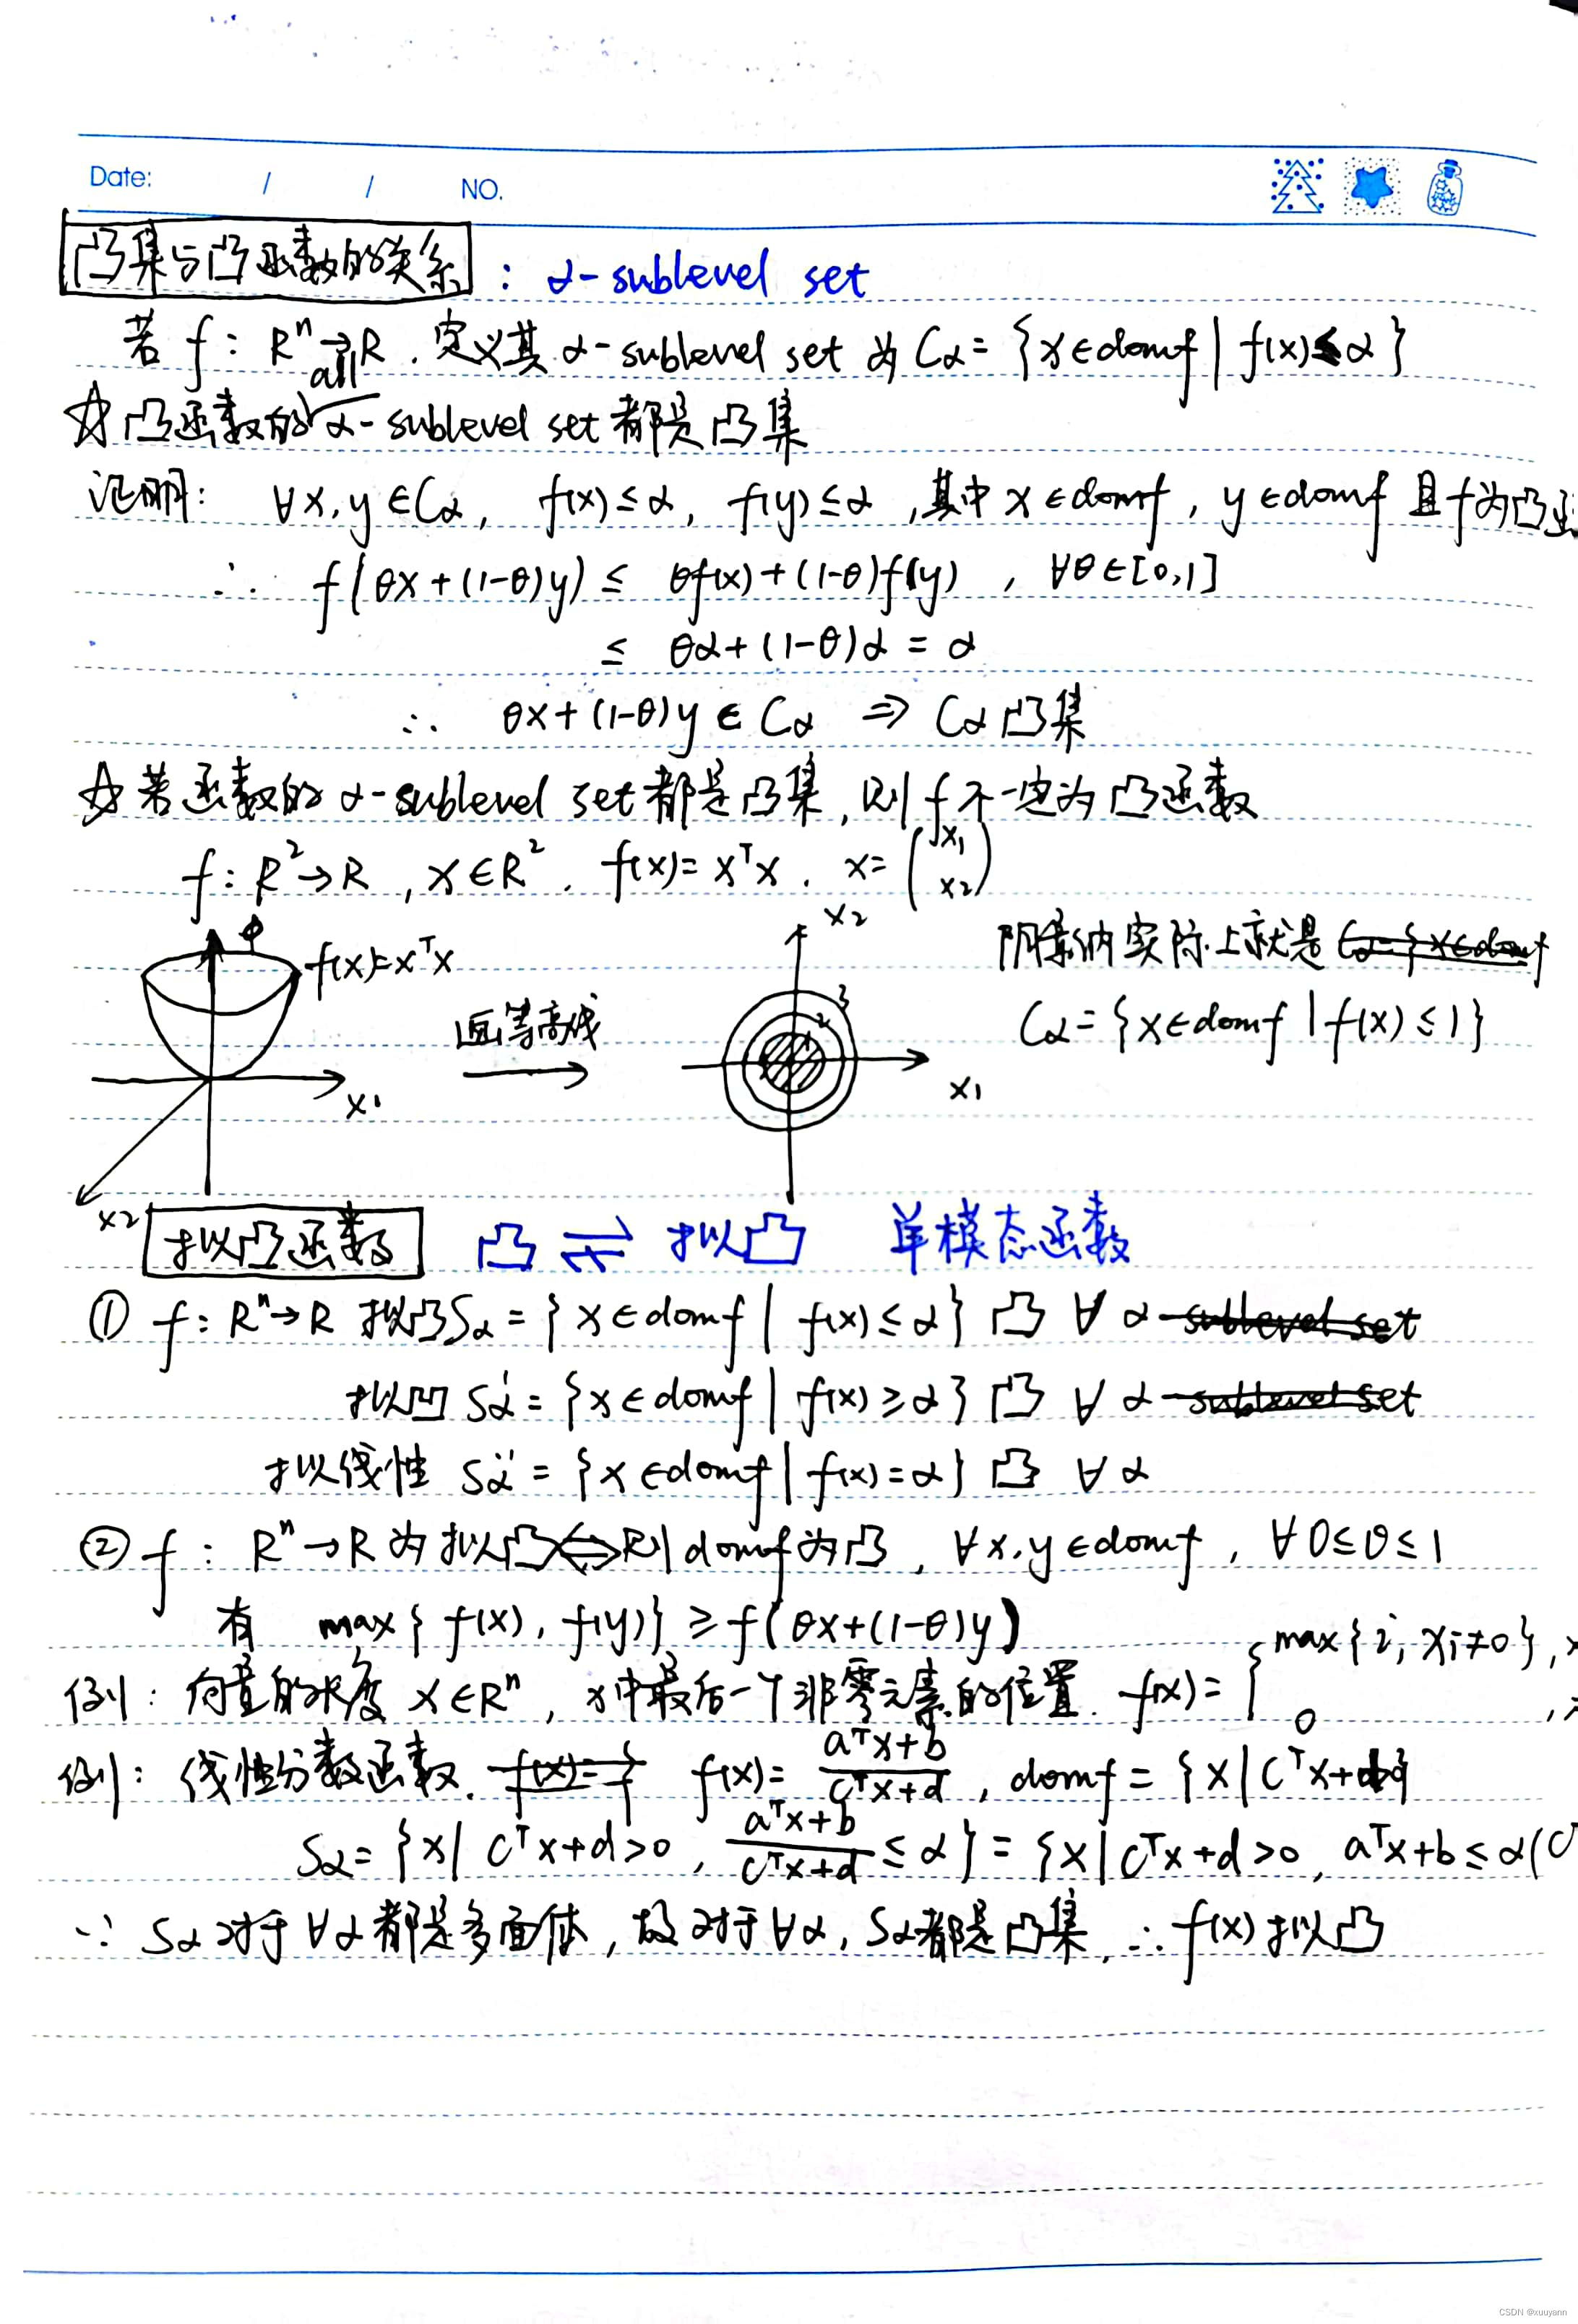 Date: / / NO.
凸集与凸函数的关系 : α-sublevel set
若 f: Rⁿ→R. 定义其 α-sublevel set 为 Cα = {x∈domf | f(x)≤α}
all
☆ 凸函数的 α-sublevel set 都是凸集
证明: ∀x,y∈Cα, f(x)≤α, f(y)≤α, 其中 x∈domf, y∈domf 且f为凸
∴ f(θx+(1-θ)y) ≤ θf(x)+(1-θ)f(y), ∀θ∈[0,1]
≤ θα+(1-θ)α = α
∴ θx+(1-θ)y ∈ Cα ⇒ Cα凸集
☆ 若函数的 α-sublevel set都是凸集, 则 f不一定为凸函数
f: R²→R, x∈R². f(x)=xᵀx. x=(x₁ x₂)
f(x)=xᵀx
x₁
x₂
画等高线
x₂
1 2 3
x₁
阴影纳实际上就是 Cα={x∈domf
Cα={x∈domf | f(x)≤1}
拟凸函数 凸 ⇌ 拟凸 单模态函数
① f: Rⁿ→R 拟凸 Sα = {x∈domf | f(x)≤α} 凸 ∀ α-sublevel set
拟凹 Sα' = {x∈domf | f(x)≥α} 凸 ∀ α-sublevel set
拟线性 Sα'' = {x∈domf | f(x)=α} 凸 ∀ α
② f: Rⁿ→R 为拟凸⇔则 domf为凸, ∀x,y∈domf, ∀0≤θ≤1
有 max{f(x), f(y)} ≥ f(θx+(1-θ)y)
例: 向量的长度 x∈Rⁿ, x中最后一个非零元素的位置. f(x)={ max{i; xᵢ≠0},
0
例: 线性分数函数. f(x)={ f(x)= (aᵀx+b)/(cᵀx+d), domf={x|cᵀx+d
Sα={x| cᵀx+d>0, (aᵀx+b)/(cᵀx+d) ≤ α} = {x|cᵀx+d>0, aᵀx+b≤α(c
∵ Sα对于∀α都是多面体, 故对于∀α, Sα都是凸集, ∴ f(x)拟凸
CSDN @xuuyann